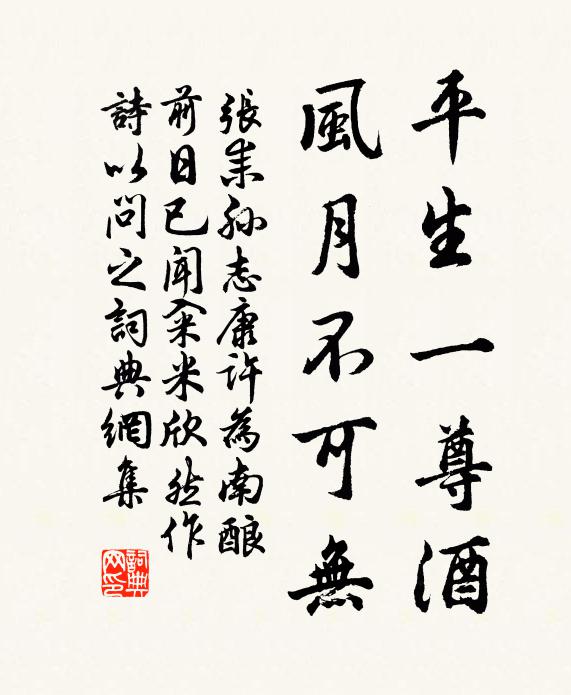 平生一尊酒
風月不可無
張耒孫志康許為南釀
前日已聞籴米欣然作
詩以問之詞典網集
詞典网印